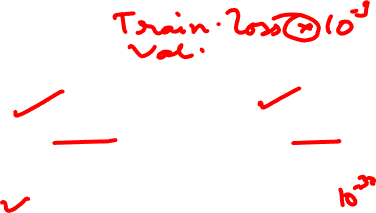 Train. Loss * 10^-3
Val.